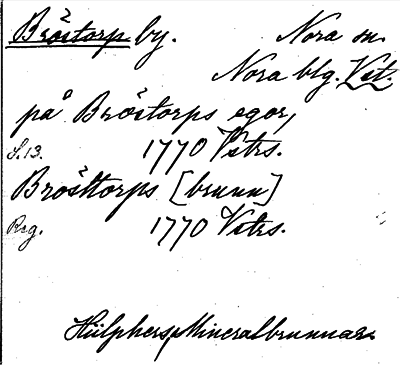 Bröstorp by. Nora sn.
Nora blg. Vst.
på Bröstorps egor,
S.13. 1770 Vstrs.
Brösttorps [brunn]
Reg. 1770 Vstrs.
Hülphers, Mineralbrunnar.